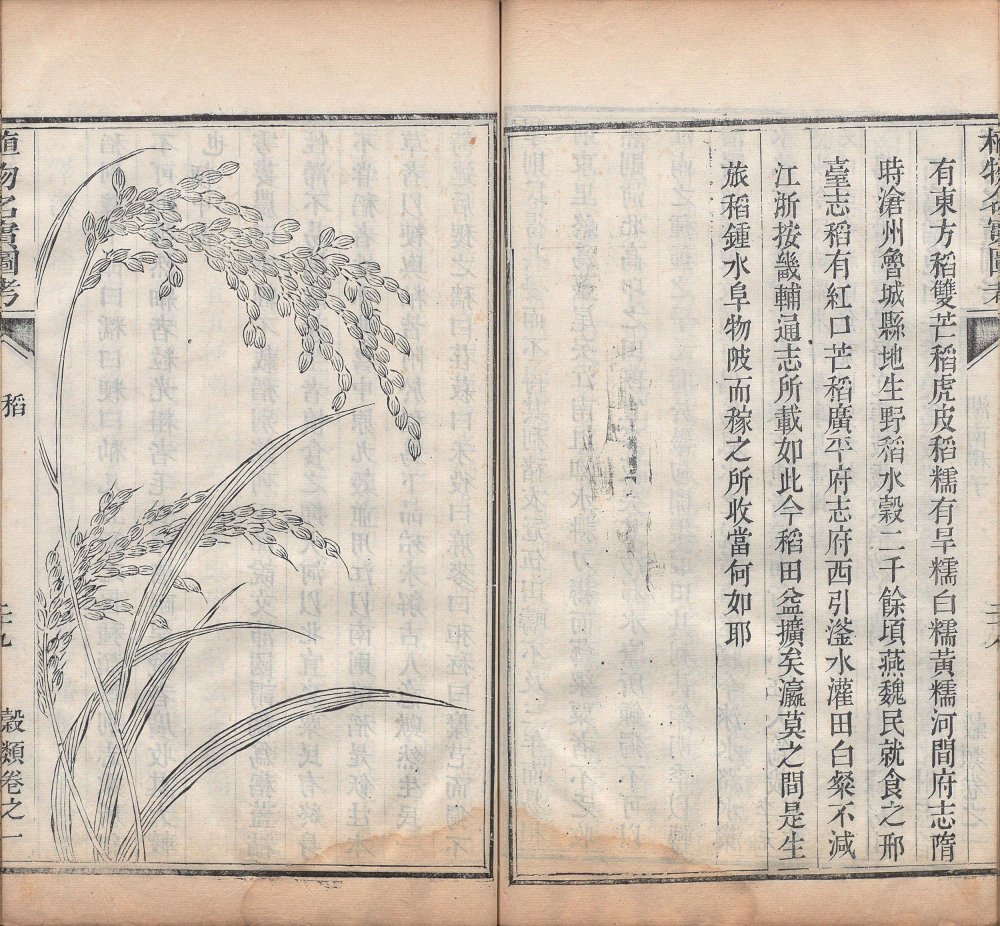 植物名實圖考
有東方稻雙芒稻虎皮稻糯有旱糯白糯黃糯河間府志隋
時滄州魯城縣地生野稻水穀二千餘頃燕魏民就食之邢
臺志稻有紅口芒稻廣平府志府西引滏水灌田白粲不減
江浙按畿輔通志所載如此今稻田益擴矣瀛莫之間是生
旅稻鍾水阜物陂而稼之所收當何如耶
植物名實圖考
稻
穀類卷之一